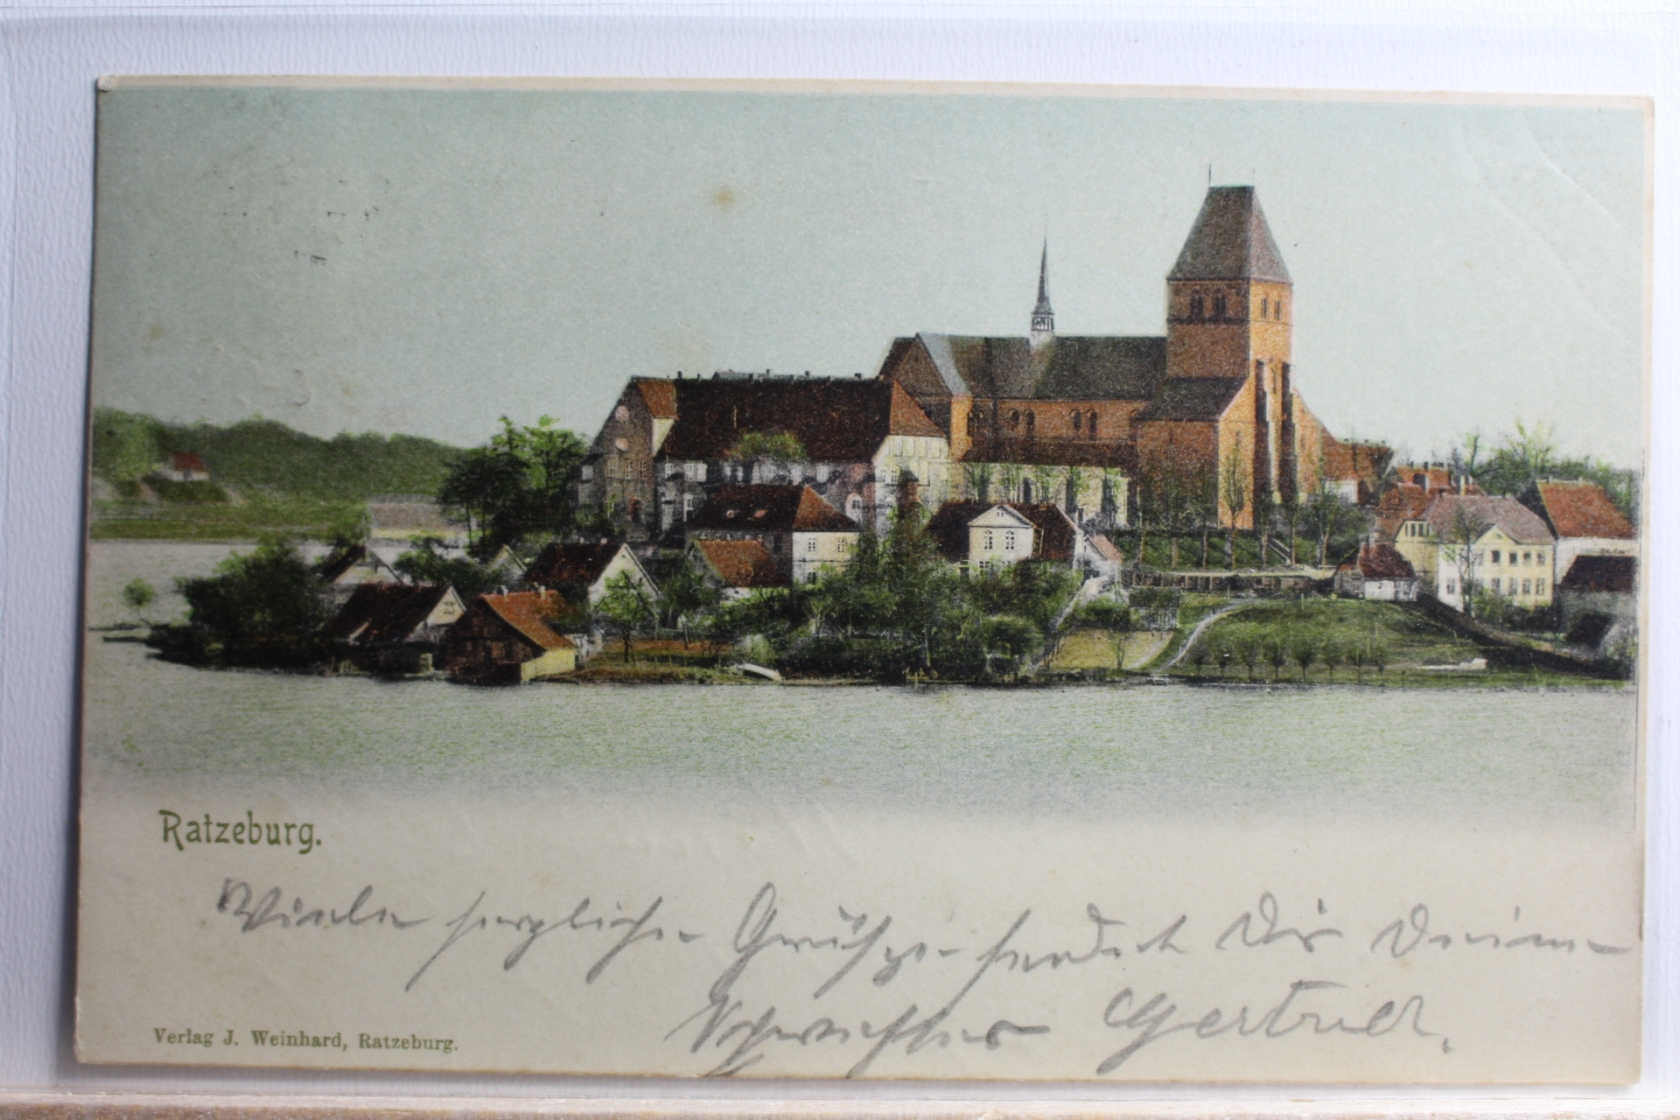 Ratzeburg.
Viele herzliche Grüße sendet Dir Deine
Schwester Gertrud.
Verlag J. Weinhard, Ratzeburg.